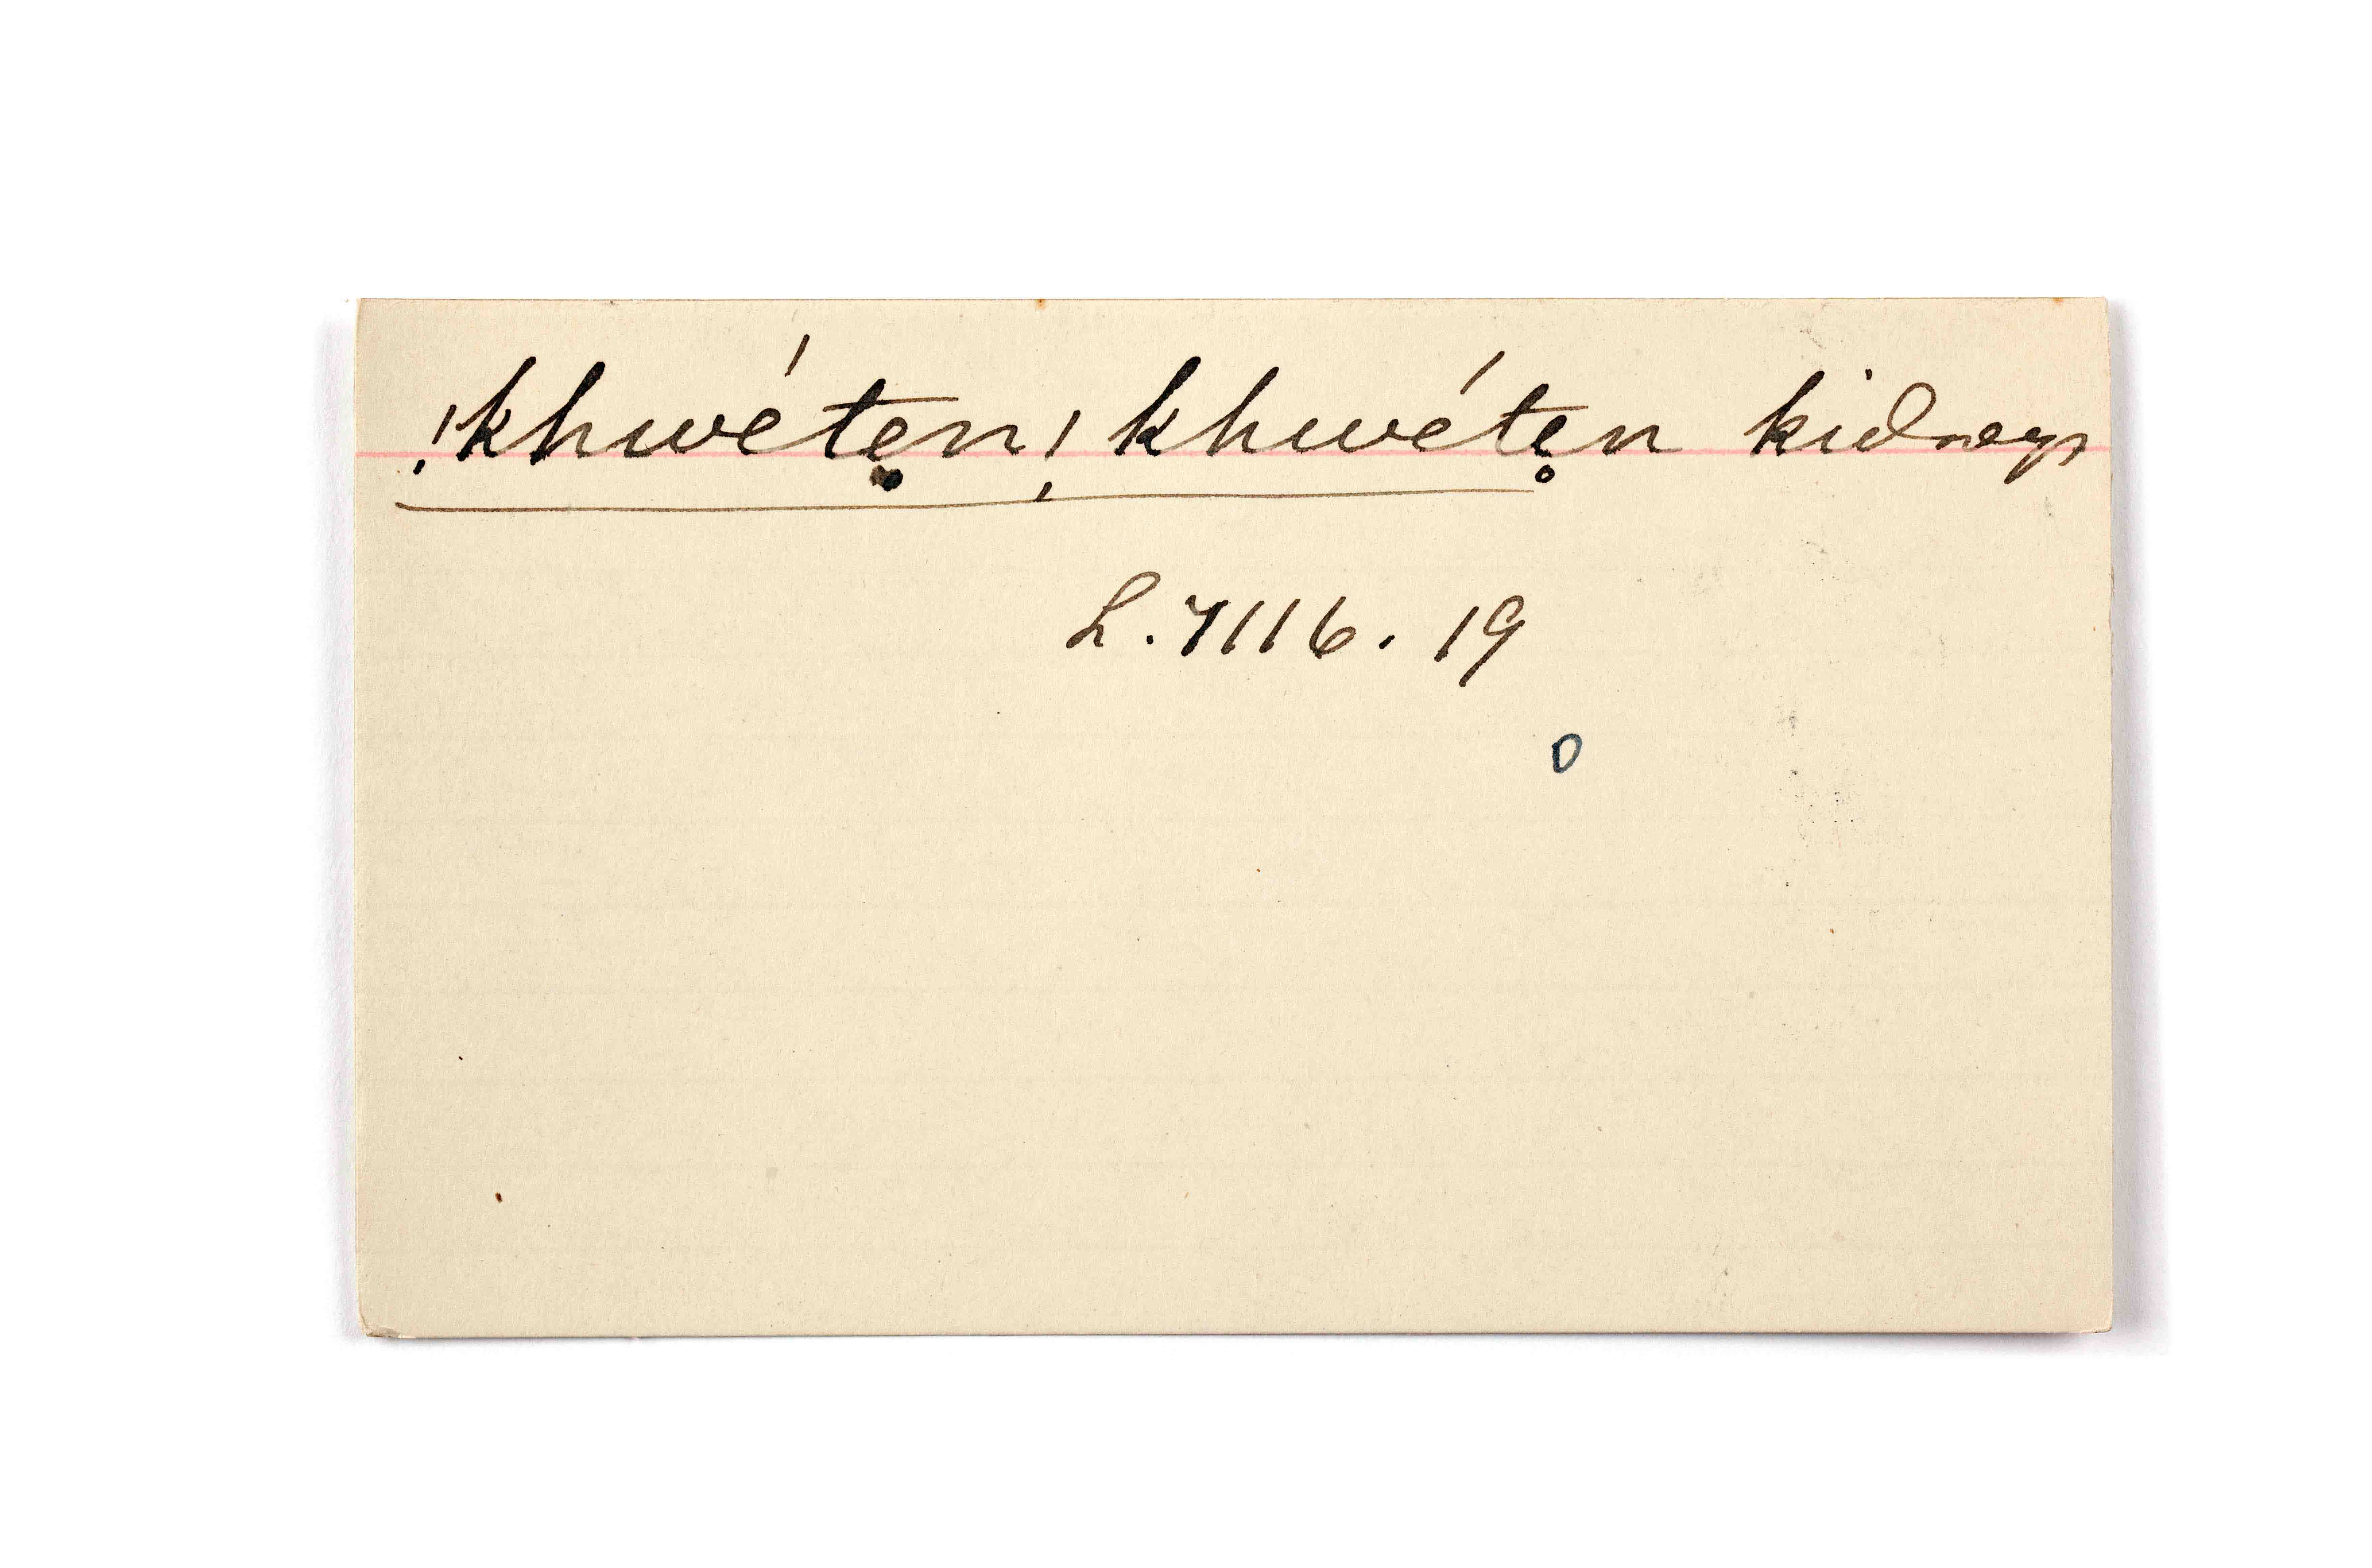 !khwéte̥n!khwéte̥n kidneys
L.7116.19
o